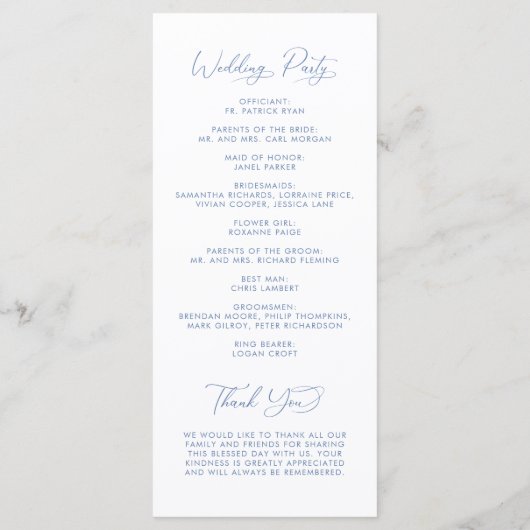 Wedding Party
OFFICIANT:
FR. PATRICK RYAN
PARENTS OF THE BRIDE:
MR. AND MRS. CARL MORGAN
MAID OF HONOR:
JANEL PARKER
BRIDESMAIDS:
SAMANTHA RICHARDS, LORRAINE PRICE,
VIVIAN COOPER, JESSICA LANE
FLOWER GIRL:
ROXANNE PAIGE
PARENTS OF THE GROOM:
MR. AND MRS. RICHARD FLEMING
BEST MAN:
CHRIS LAMBERT
GROOMSMEN:
BRENDAN MOORE, PHILIP THOMPKINS,
MARK GILROY, PETER RICHARDSON
RING BEARER:
LOGAN CROFT
Thank You
WE WOULD LIKE TO THANK ALL OUR
FAMILY AND FRIENDS FOR SHARING
THIS BLESSED DAY WITH US. YOUR
KINDNESS IS GREATLY APPRECIATED
AND WILL ALWAYS BE REMEMBERED.